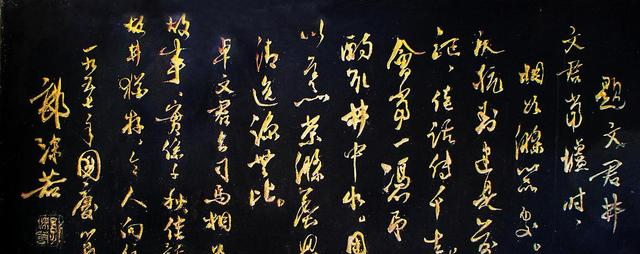 題文君井
文君當壚時、
相如滌器處。
反抗封建是前
驅、佳話傳千古
會當一憑弔
酌取井中水。用
以烹茶滌塵思
清逸涼無比。
卓文君與司馬相如
故事、實係千秋佳話
故井猶存、令人向往
一九五七年國慶
郭沫若